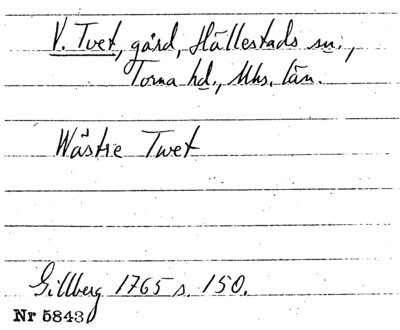 V. Tvet, gård, Hällestads sn.,
Torna hd., Mhs. län.
Wästre Twet
Gillberg 1765 s. 150.
Nr 5843